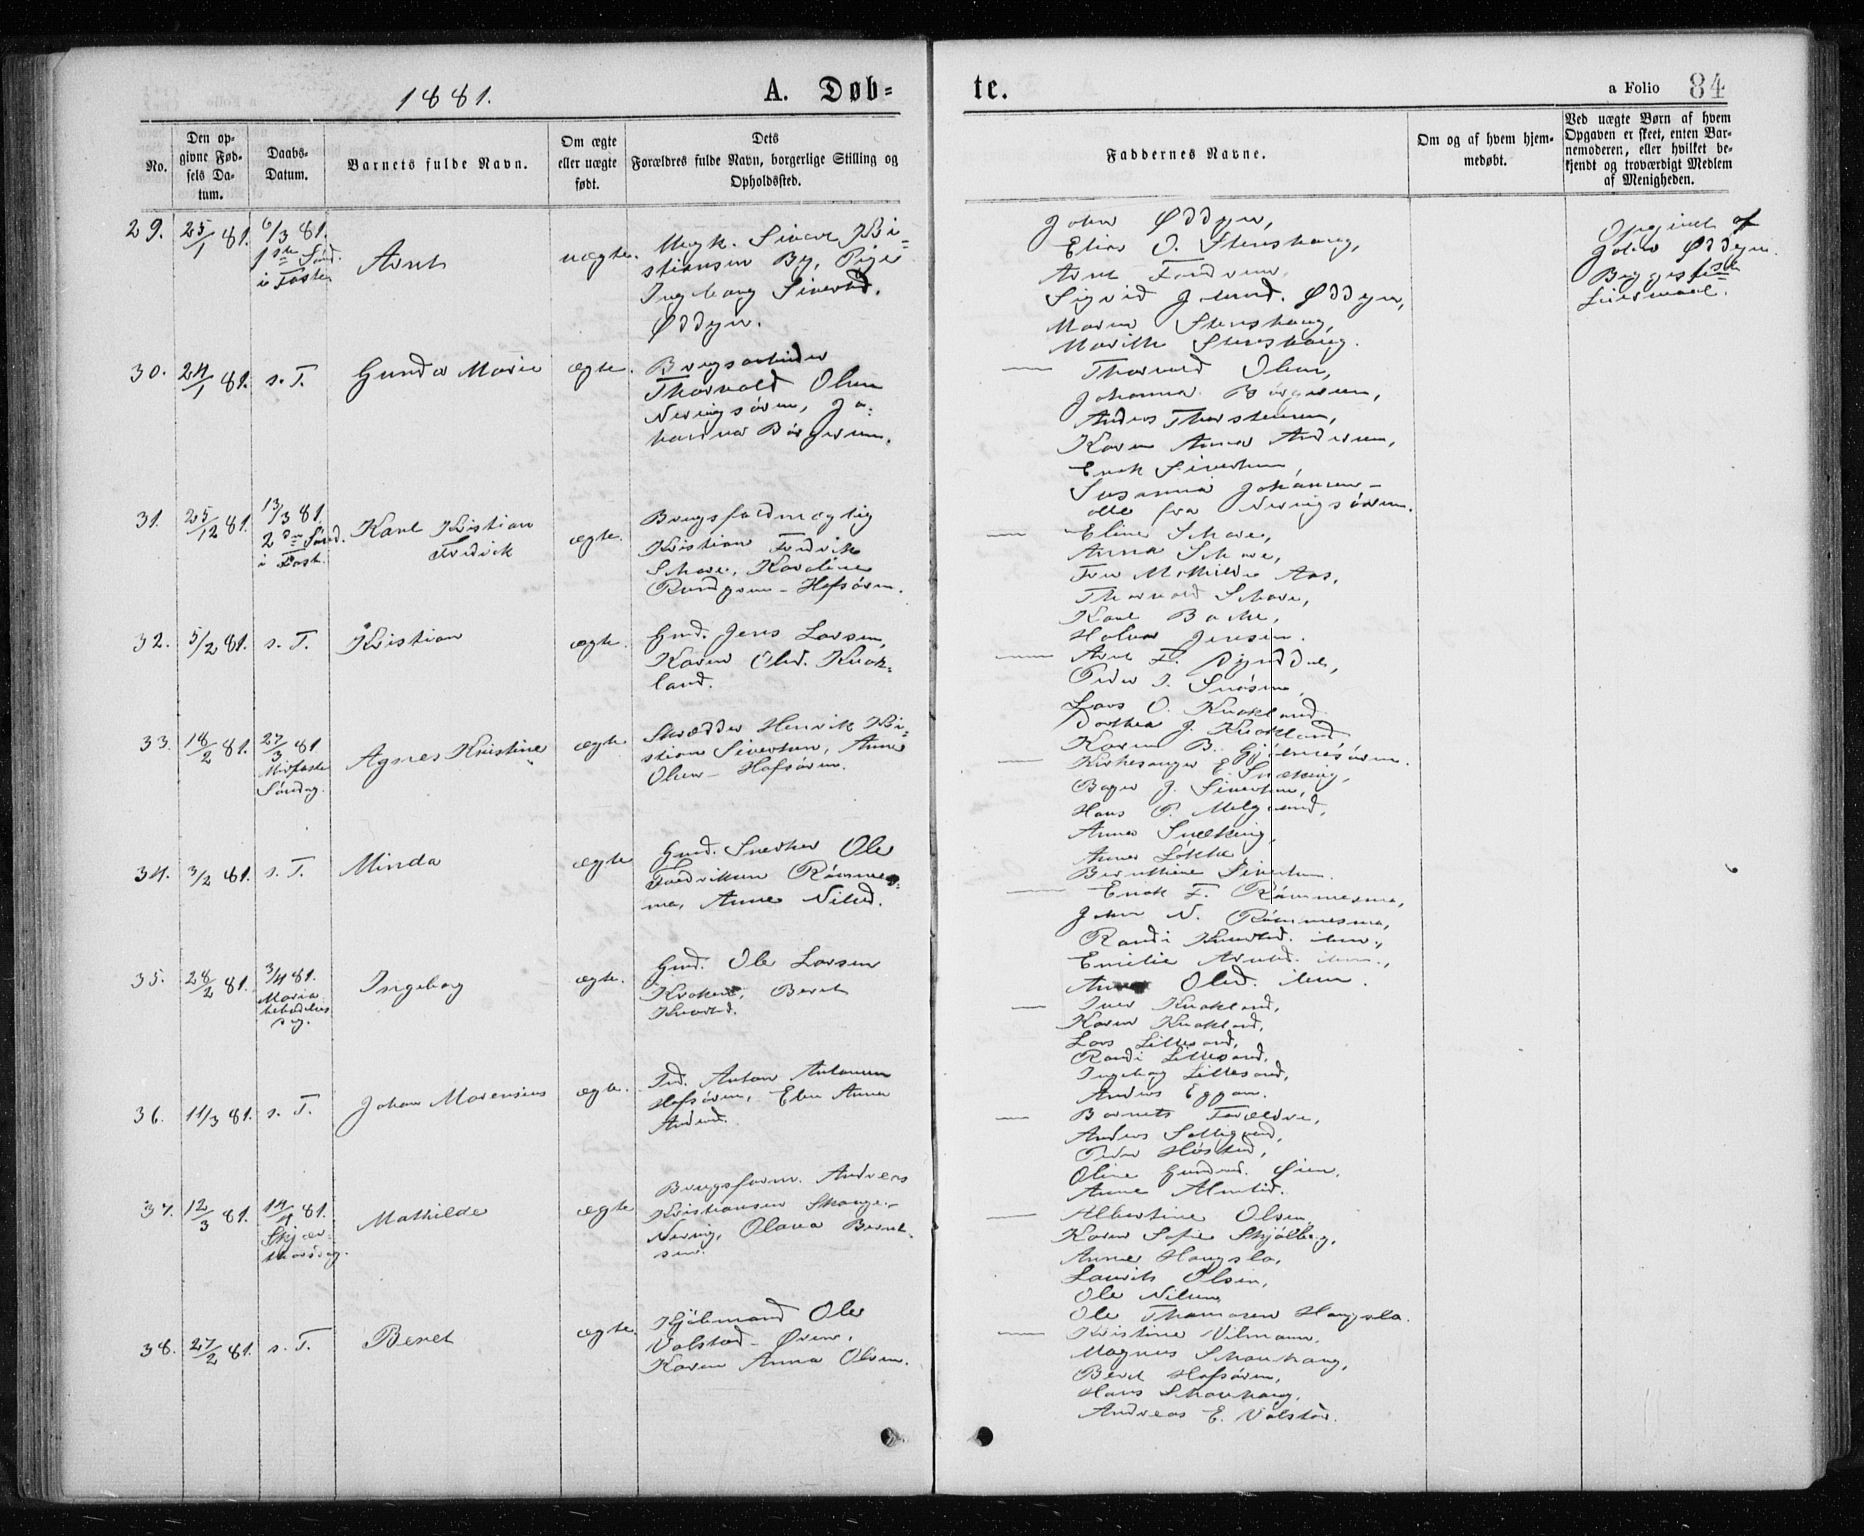 1881.
A. Døb=
te.
a Folio 84
No.
Den op-
givne Fød-
sels Da-
tum.
Daabs-
Datum.
Barnets fulde Navn.
Om ægte
eller uægte
født.
Dets
Forældres fulde Navn, borgerlige Stilling og
Opholdssted.
Faddernes Navne.
Om og af hvem hjem-
medøbt.
Ved uægte Børn af hvem
Opgaven er skeet, enten Bar-
nemoderen, eller hvilket be-
kjendt og troværdigt Medlem
af Menigheden.
29.
25/1 81.
6/3 81.
1ste Sønd.
i Faste
Arnt
uægte.
Ungk. Sivert Kri-
stiansen By, Pige
Ingeborg Sivertsd.
Øddyn.
John Øddyn,
Elias O. Stenshaug,
Arnt
Sigrid Johnsd. Øddyn,
Maren Stenshaug,
Marith Stenshaug.
Opgivet af
John Øddyn.
Bygselsst
Leiermaal.
30.
24/1 81.
s. T.
Gunda Marie
ægte.
Brugsarbeider
Thorvald Olsen
Nervigsøren, Jo-
hanna Børgesen.
Thorvald Olsen,
Johanna Børgesen,
Anders Thorstensen,
Karen Anna Andersen,
Enok Sivertsen,
Susanna Johansen -
alle fra Nervigsøren.
31.
25/12 81.
13/3 81.
2den Sønd.
i Fast.
Karl Kristian
Fredrik
ægte.
Brugsfuldmægtig
Kristian Fredrik
Karoline
- Hofsøren.
Eline
Anna
Mathilde Aas,
Thorvald
Karl
Halvor Jensen.
32.
5/2 81.
s. T.
Kristian
ægte.
Gmd. Jens Larsen,
Karen Olsd. Kvak-
land.
Arnt F.
Peder J.
Lars O. Kvakland
Dorthea J. Kvakland
Karen B. Gjølmesøren.
33.
18/2 81.
27/3 81
Midfaste
Søndag.
Agnes Kristine
ægte.
Skrædder Henrik Kri-
stian Sivertsen, Anne
Olsen - Hofsøren.
Kirkesanger E. Snekvig,
J. Sivertsen,
Hans O.
Anna Snekvig,
Anne Løkke,
Bernthine Sivertsen.
34.
3/2 81.
s. T.
Minda
ægte
Gmd. Snedker Ole
Fredriksen Rømmes-
mo, Anne Nilsd.
Enok F. Rømmesmo,
John N. Rømmesmo,
Randi Knudsd. ibm.,
Emilie Arntsd. ibm.,
Anne Olsd. ibm.
35.
28/2 81.
3/4 81.
Maria
bebudelses
dag.
Ingeborg
ægte.
Gmd. Ole Larsen
Beret
Iversd.
Iver Kvakland,
Karen Kvakland,
Lars Lillesand,
Randi Lillesand,
Ingeborg Lillesand,
Anders Eggan.
36.
11/3 81.
s. T.
Johan Marensius
ægte.
Ind. Anton Antonsen
Hofsøren, Elen Anna
Andersd.
Barnets Forældre,
Anders
Peder
Oline Gundersd. Øien,
Anne Almlid.
37.
12/3 81.
14/4 81.
Skjær-
thorsdag.
Mathilde
ægte
Brugsform. Andreas
Kristiansen Skauge -
Nervig, Olava Bernt-
sen.
Albertine Olsen,
Karen Sofie Skjølberg,
Anne Haugslo,
Laurits Olsen,
Ole Nilsen
Ole Thomasen Haugslo.
38.
27/2 81.
s. T.
Beret
ægte.
Kjøbmand Ole
Volstad - Øren,
Karen Anna Olsen.
Kristine Vilmann,
Magnus Skauhaug,
Beret Hofsøren,
Hans Skauhaug,
Andreas E. Volstad.